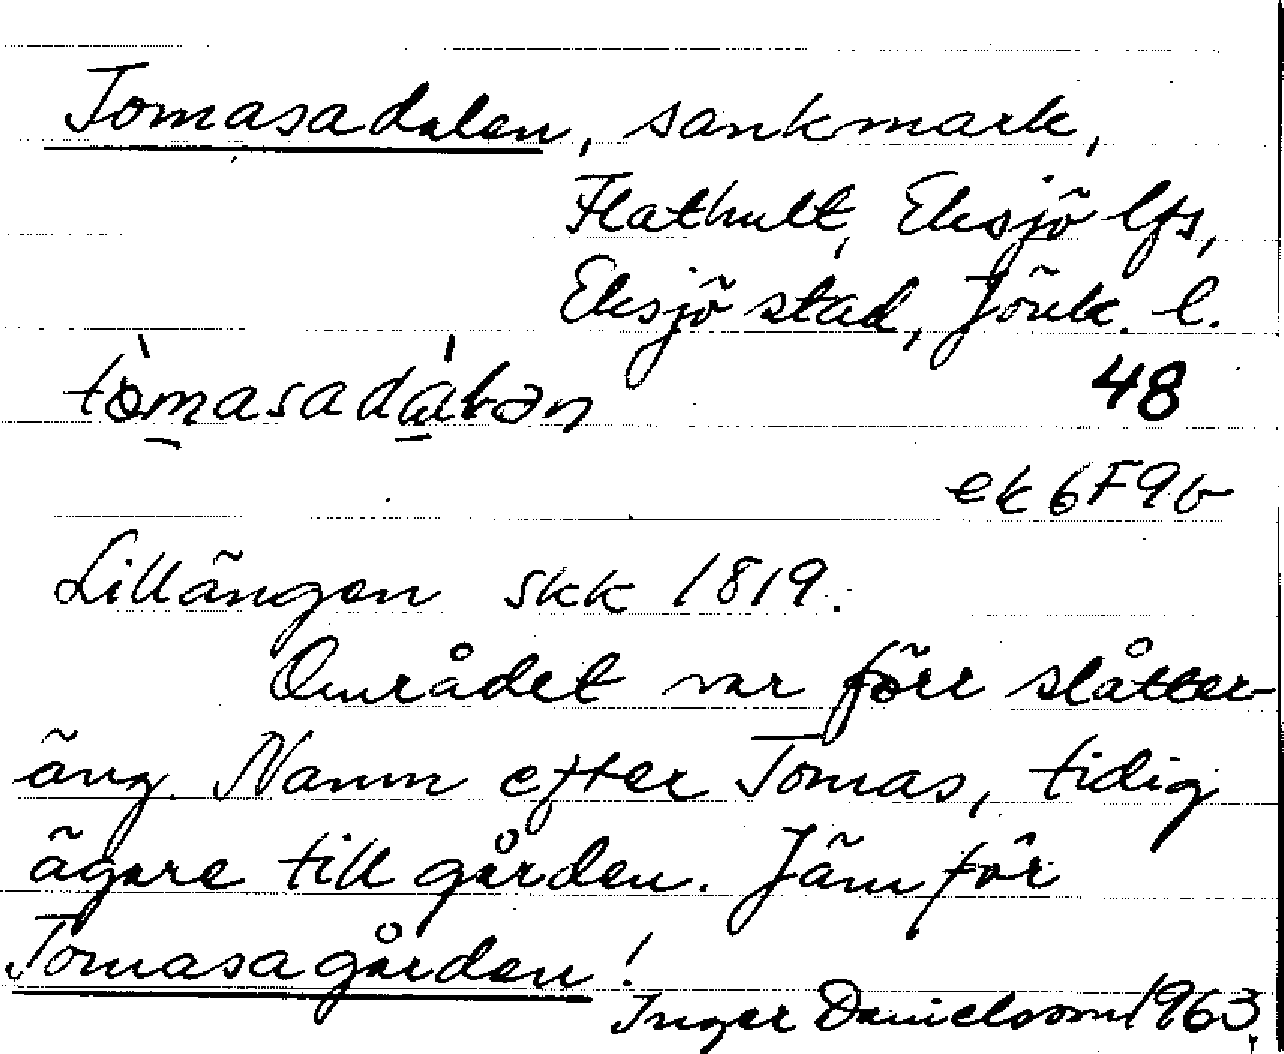 Tomasadalen, sankmark,
Flathult, Eksjö lfs,
Eksjö stad, Jönk. l.
tòmasadàlən
48
ek 6F9b
Lillängen skk 1819.
Området var förr slåtter-
äng. Namn efter Tomas, tidig
ägare till gården. Jämför
Tomasagården!
Inger Danielsson 1963.